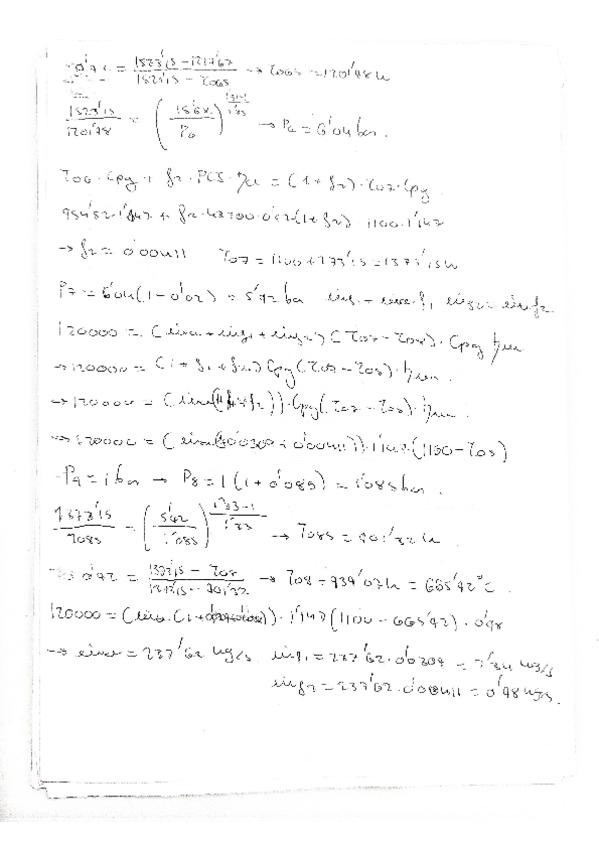 0'92 = (1523'15 - 1217'67)/(1523'15 - T06s) → T06s = 1201'48 K
1523'15/1201'48 = (15'68/P6)^(1'33-1/1'33) → P6 = 6'04 bar.
T06 · Cpg + f2 · PCI · ηcc = (1+f2) · T07 · Cpg
954'52 · 1'147 + f2 · 43200 · 0'98 = (1+f2) 1100 · 1'147
→ f2 = 0'00411 T07 = 1100 + 273'15 = 1373'15 K
P7 = 6'04 (1 - 0'02) = 5'92 bar ṁf1 = ṁa · f1 ṁf2 = ṁa · f2
120000 = (ṁa + ṁf1 + ṁf2) (T07 - T08) · Cpg ηm
→ 120000 = (1 + f1 + f2) Cpg (T07 - T08) · ηm.
→ 120000 = (ṁa ( f2)) · Cpg (T07 - T08) · ηm.
→ 120000 = (ṁa ( 0'0309 + 0'00411)) · 1'147 (1100 - T08)
P9 = 1 bar → P8 = 1 (1 + 0'085) = 1'085 bar.
1373'15/T08s = (5'92/1'085)^(1'33-1/1'33) → T08s = 901'32 K
0'92 = (1373'15 - T08)/(1373'15 - 901'32) → T08 = 939'07 K = 665'92 °C
120000 = (ṁa · (1 + )) · 1'147 (1100 - 665'92) · 0'98
→ ṁa = 237'62 kg/s ṁf1 = 237'62 · 0'0309 = 7'34 kg/s
ṁf2 = 237'62 · 0'00411 = 0'98 kg/s.